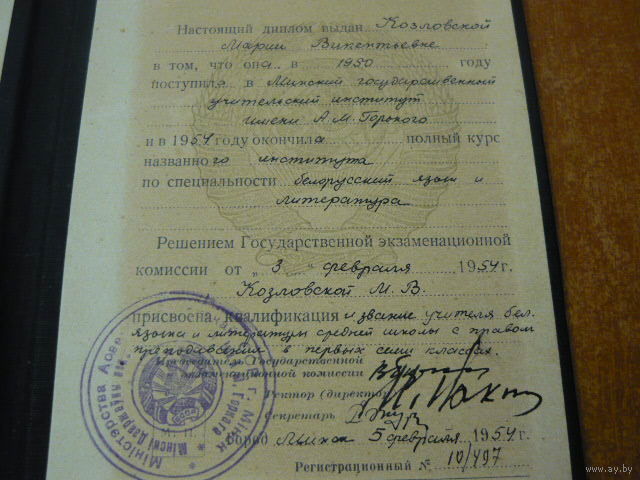 Настоящий диплом выдан Козловской
Марии Викентьевне
в том, что она в 1950 году
поступила в Минский государственный
учительский институт
имени А.М. Горького
и в 1954 году окончила полный курс
названного института
по специальности белорусский язык и
литература
Решением Государственной экзаменационной
комиссии от „3" февраля 1954 г.
Козловской М. В.
присвоена квалификация и звание учителя бел.
языка и литературы средней школы с правом
преподавания в первых семи классах.
Председатель Государственной
экзаменационной комиссии
Ректор (директор)
Секретарь
Город Минск 5 февраля 1954 г.
Регистрационный № 10/497
Міністэрства Асве
www.ay.by